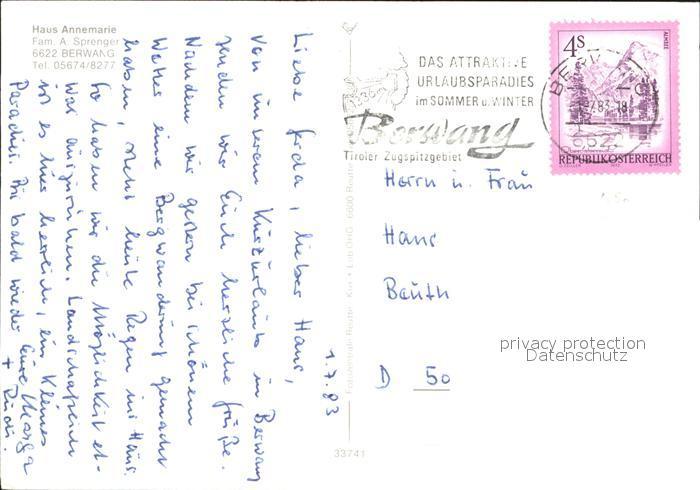 Haus Annemarie
Fam. A. Sprenger
6622 BERWANG
Tel. 05674/8277
1.7.83
Liebe Frida, lieber Hans,
von unserem Kurzurlaub in Berwang
senden wir Euch herzliche Grüße.
Nachdem wir gestern bei schönem
Wetter eine Bergwanderung gemacht
haben, steht heute Regen ins Haus.
So haben wir die Möglichkeit et-
was auszuruhen. Landschaftlich
ist es hier herrlich, ein kleines
Paradies. Bis bald wieder Eure Marga
+ Rudi.
DAS ATTRAKTIVE
URLAUBSPARADIES
im SOMMER u. WINTER
Berwang
Tiroler Zugspitzgebiet
BERWANG
7.83-18
6622
4S
ALMSEE
REPUBLIK ÖSTERREICH
Herrn u. Frau
Hans
Beuth
D 50
privacy protection
Datenschutz
33741